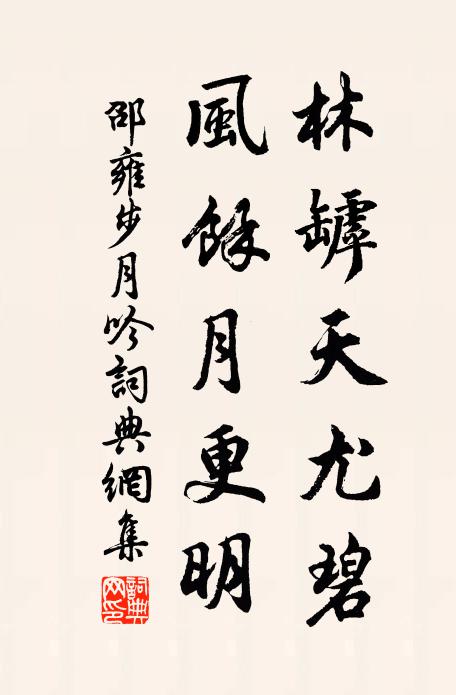 林罅天尤碧
風餘月更明
邵雍步月吟詞典網集
詞典網印